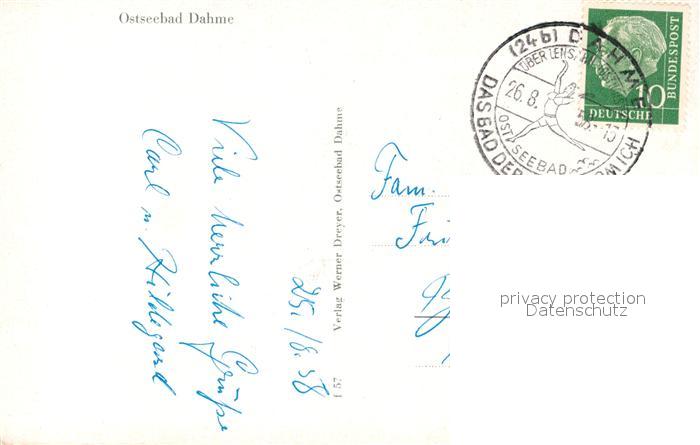 Ostseebad Dahme
Viele herrliche Grüße
Carl u. Hildegard
25./8.58
f 57
Verlag Werner Dreyer, Ostseebad Dahme
Fam.
(24b) DAHME
ÜBER LENS
26.8.
OSTSEEBAD
DAS BAD DER
MICH
10
DEUTSCHE
BUNDESPOST
privacy protection
Datenschutz